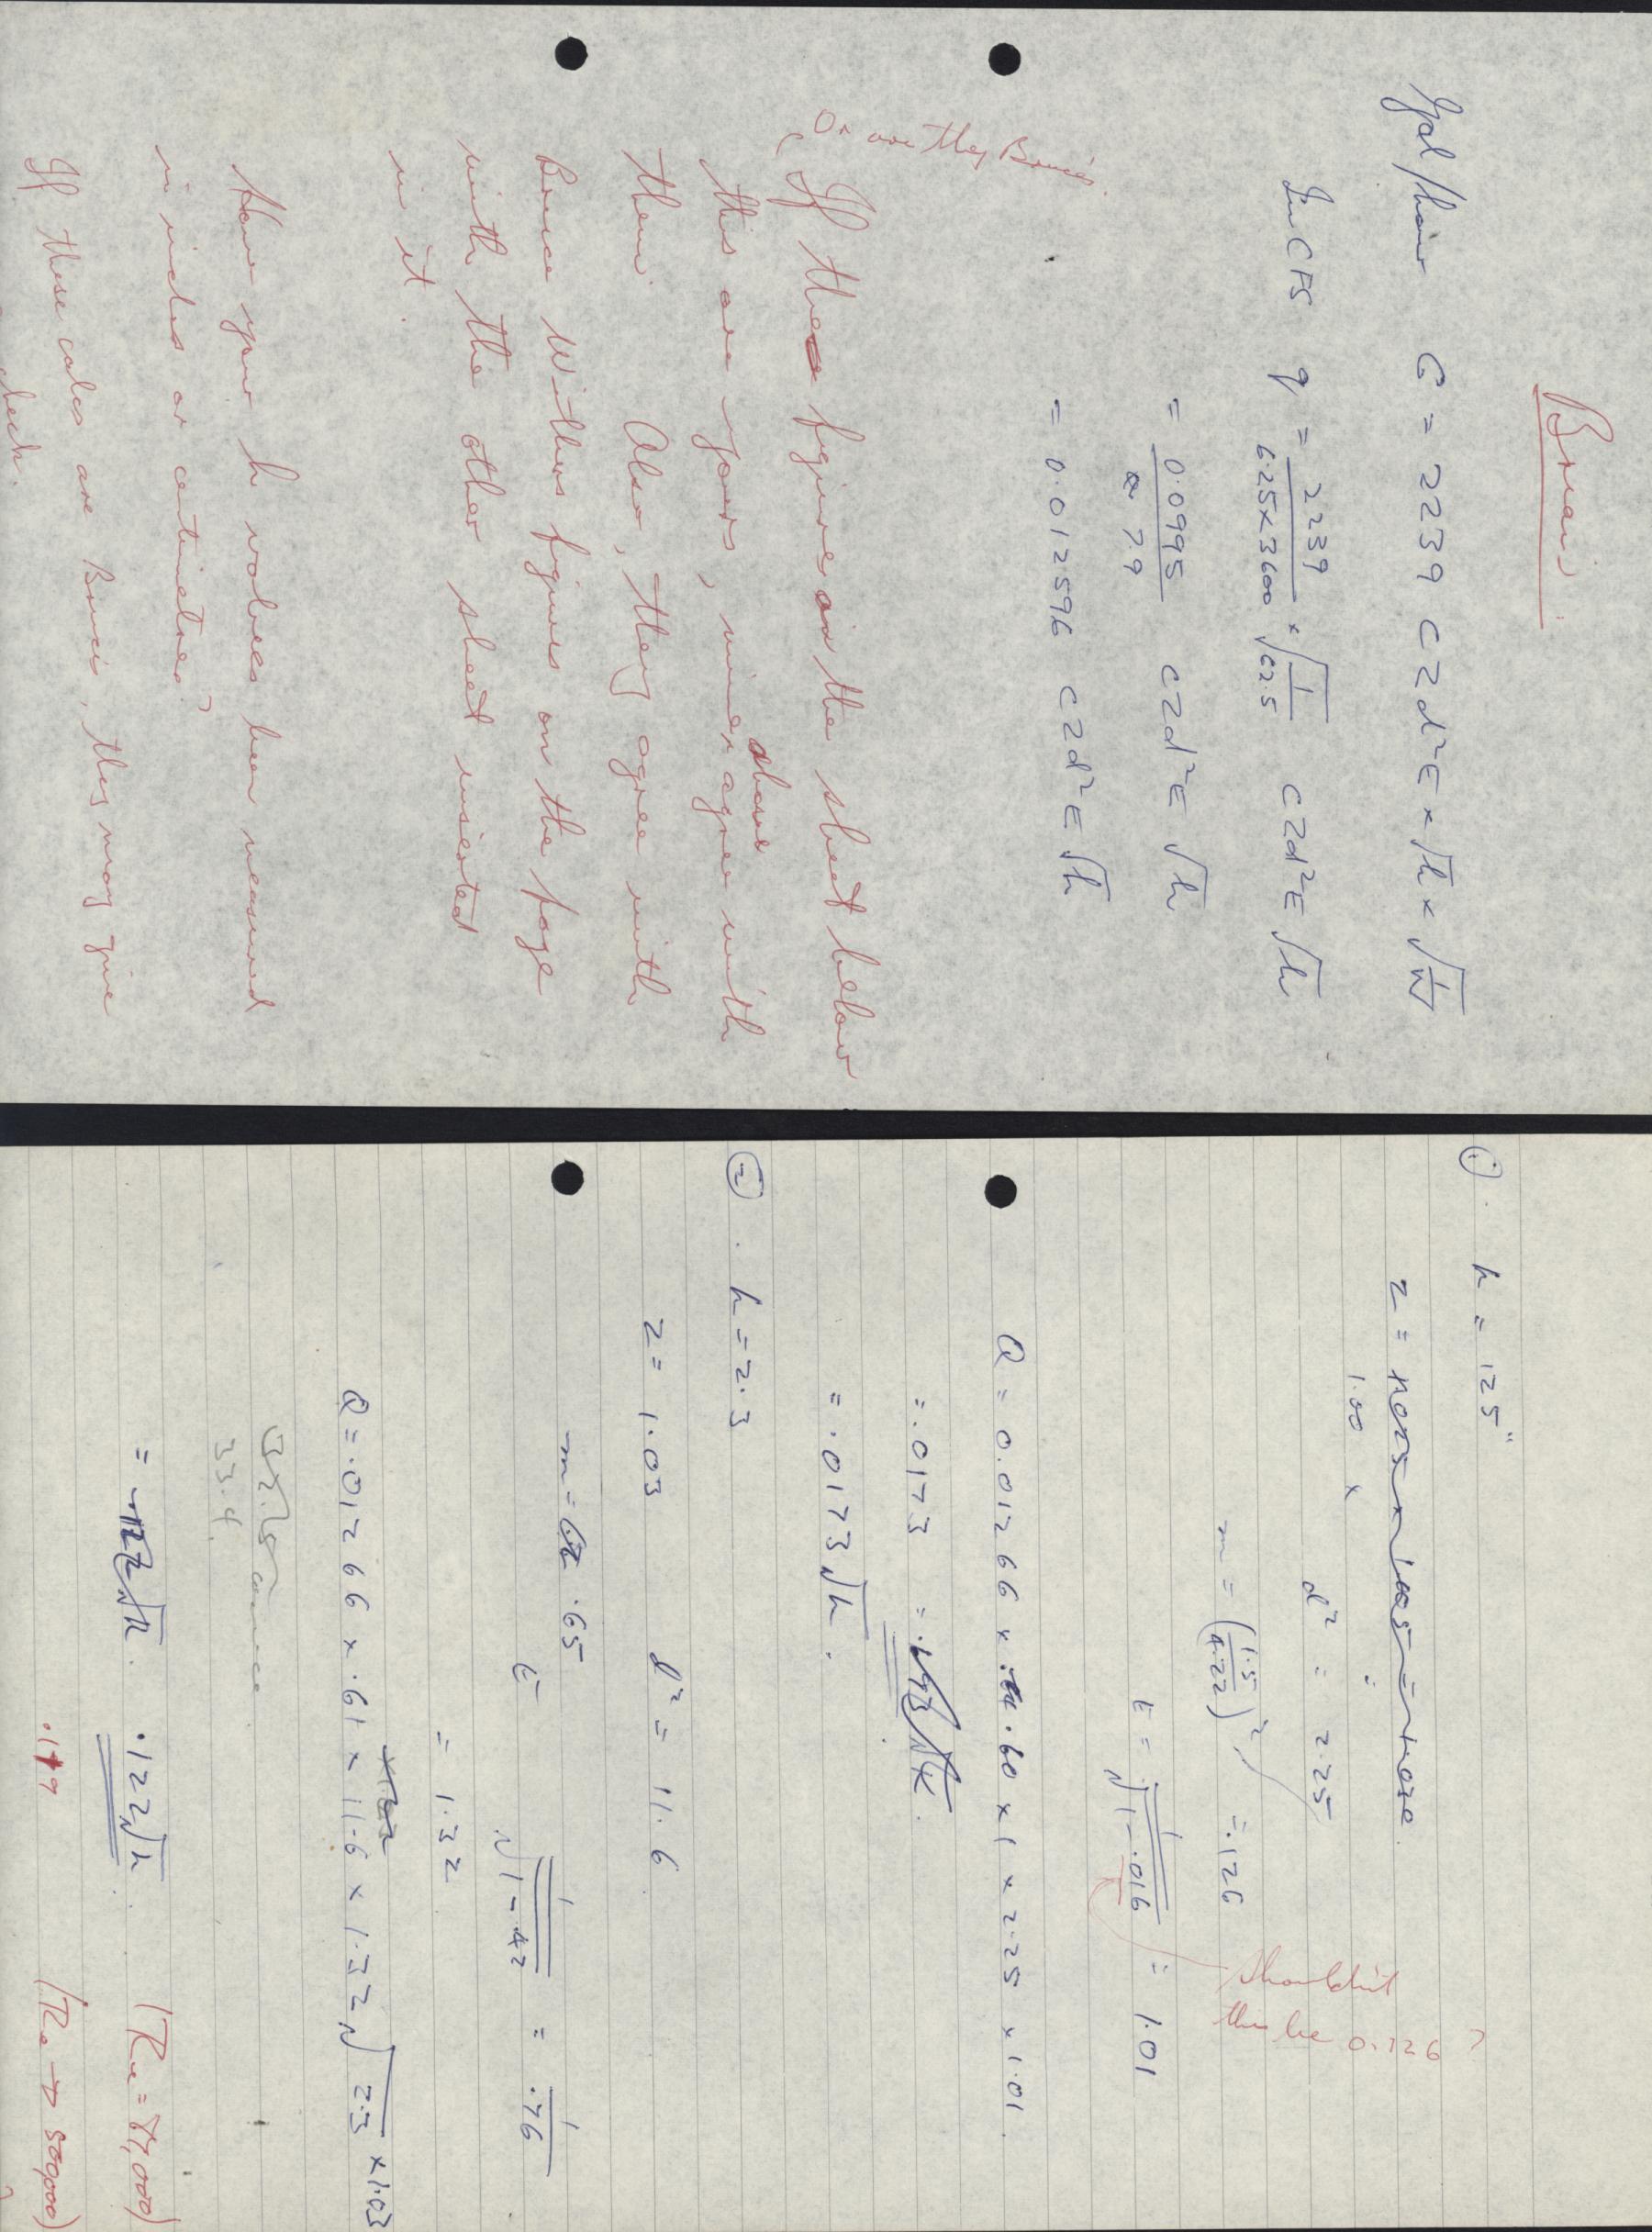 Bruce's
Igal/hour G = 2239 CZd²E × √h × √1/W
In CFS q = 2239 / 6.25×3600 × √1/62.5 CZd²E √h
= 0.0995 / 7.9 CZd²E √h
= 0.012596 CZd²E √h
Or are they Bruce's
If these figures on the sheet below
this are yours, mine above agree with
them. Also, they agree with
Bruce Withers figures on the page
with the other sheet inserted
in it.
Have your h values been measured
in inches or centimetres?
If these calcs are Bruce's, they may give
check.
① h = 125"
Z =
1.00 ×
d² = 2.25
m = (1.5/4.22)² = .126
E = 1/√1-.016 = 1.01
Shouldn't
this be 0.126 ?
Q = 0.01266 × .60 × 1 × 2.25 × 1.01
= .0173 =
= .0173√h.
② h = 2.3
Z = 1.03 d² = 11.6
m = .65
E 1/√1-.42 = 1/.76
= 1.32
Q = .01266 × .61 × 11.6 × 1.32√2.3 × 1.03
33.4
= .122√h. (Re = 84,000)
.119 (Re → 500,000)